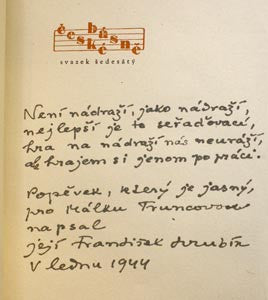 české básně
svazek šedesátý
Není nádraží, jako nádraží,
nejlepší je to seřaďovací,
hra na nádraží nás neuráží,
ať hrajem si jenom po práci.
Popěvek, který je jasný,
pro Málku Truncovou
napsal
její František Hrubín
V lednu 1944